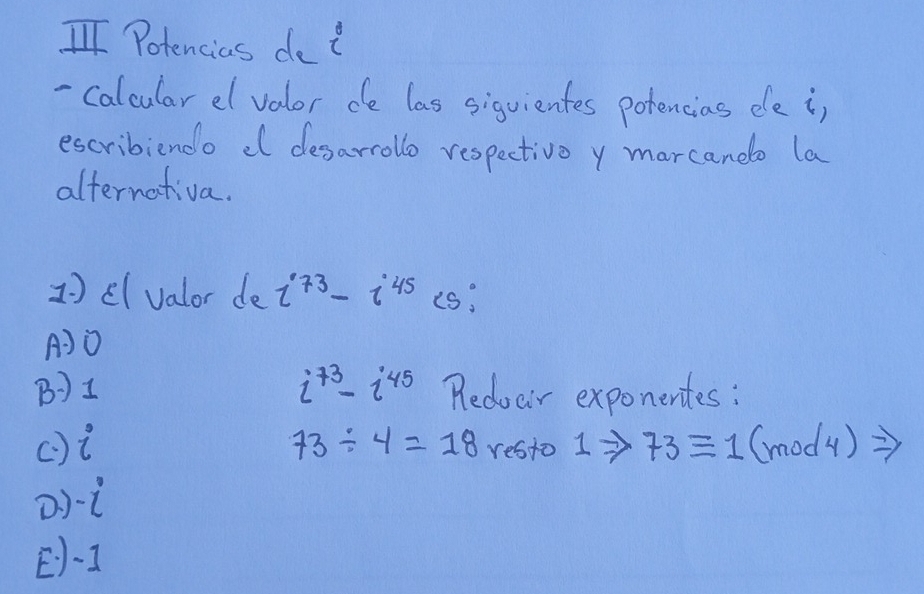 III Potencias de i
- Calcular el valor de las siguientes potencias de i,
escribiendo el desarrollo respectivo y marcando la
alternativa.
1-) El valor de i⁷³ - i⁴⁵ es:
A-) 0
B-) 1
i⁷³ - i⁴⁵ Reducir exponentes:
C-) i
73 ÷ 4 = 18 resto 1 ⇒ 73 ≡ 1 (mod 4) ⇒
D-) -i
E-) -1